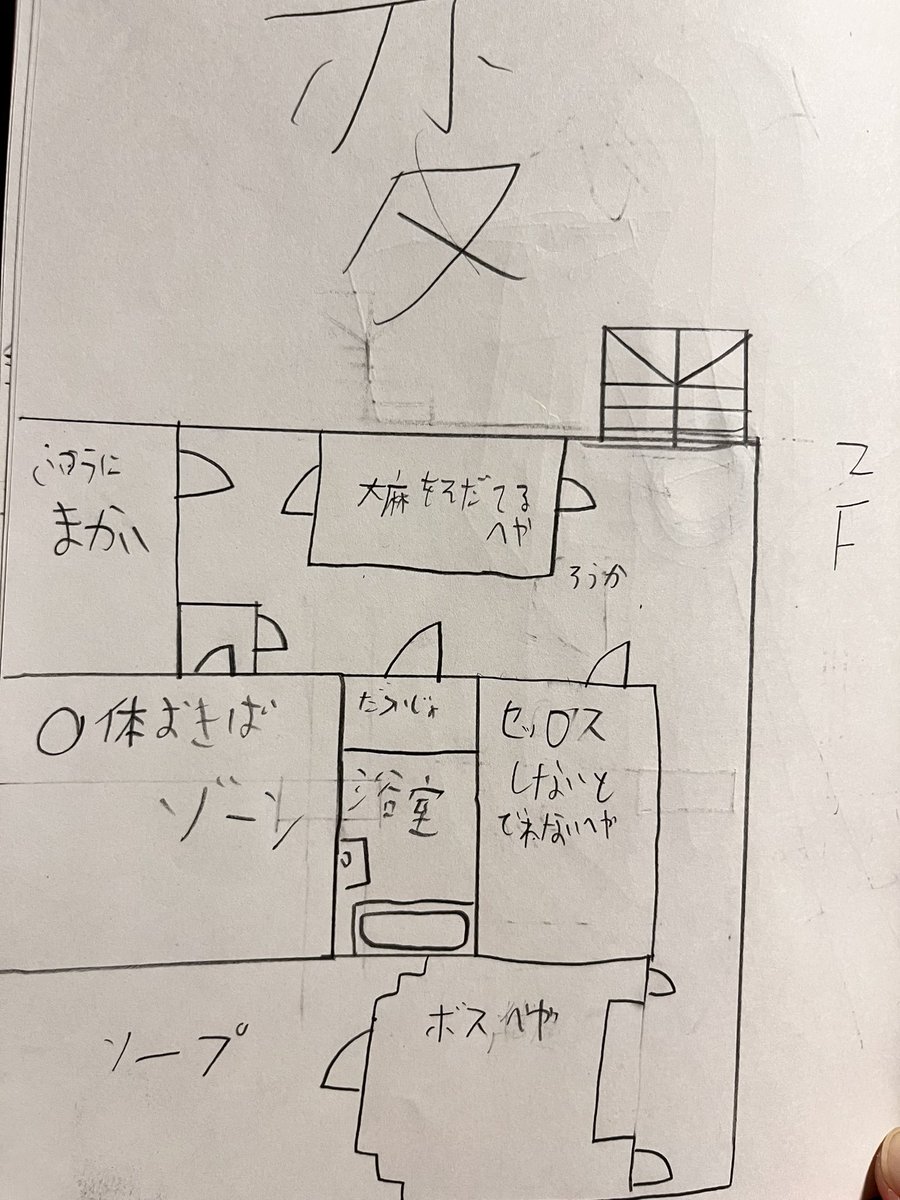 2F
ふつうに
まかい
大麻をそだてる
へや
ろうか
〇体おきば
ゾーン
だついじょ
浴室
セッ〇ス
しないと
でれないへや
ソープ
ボスへや